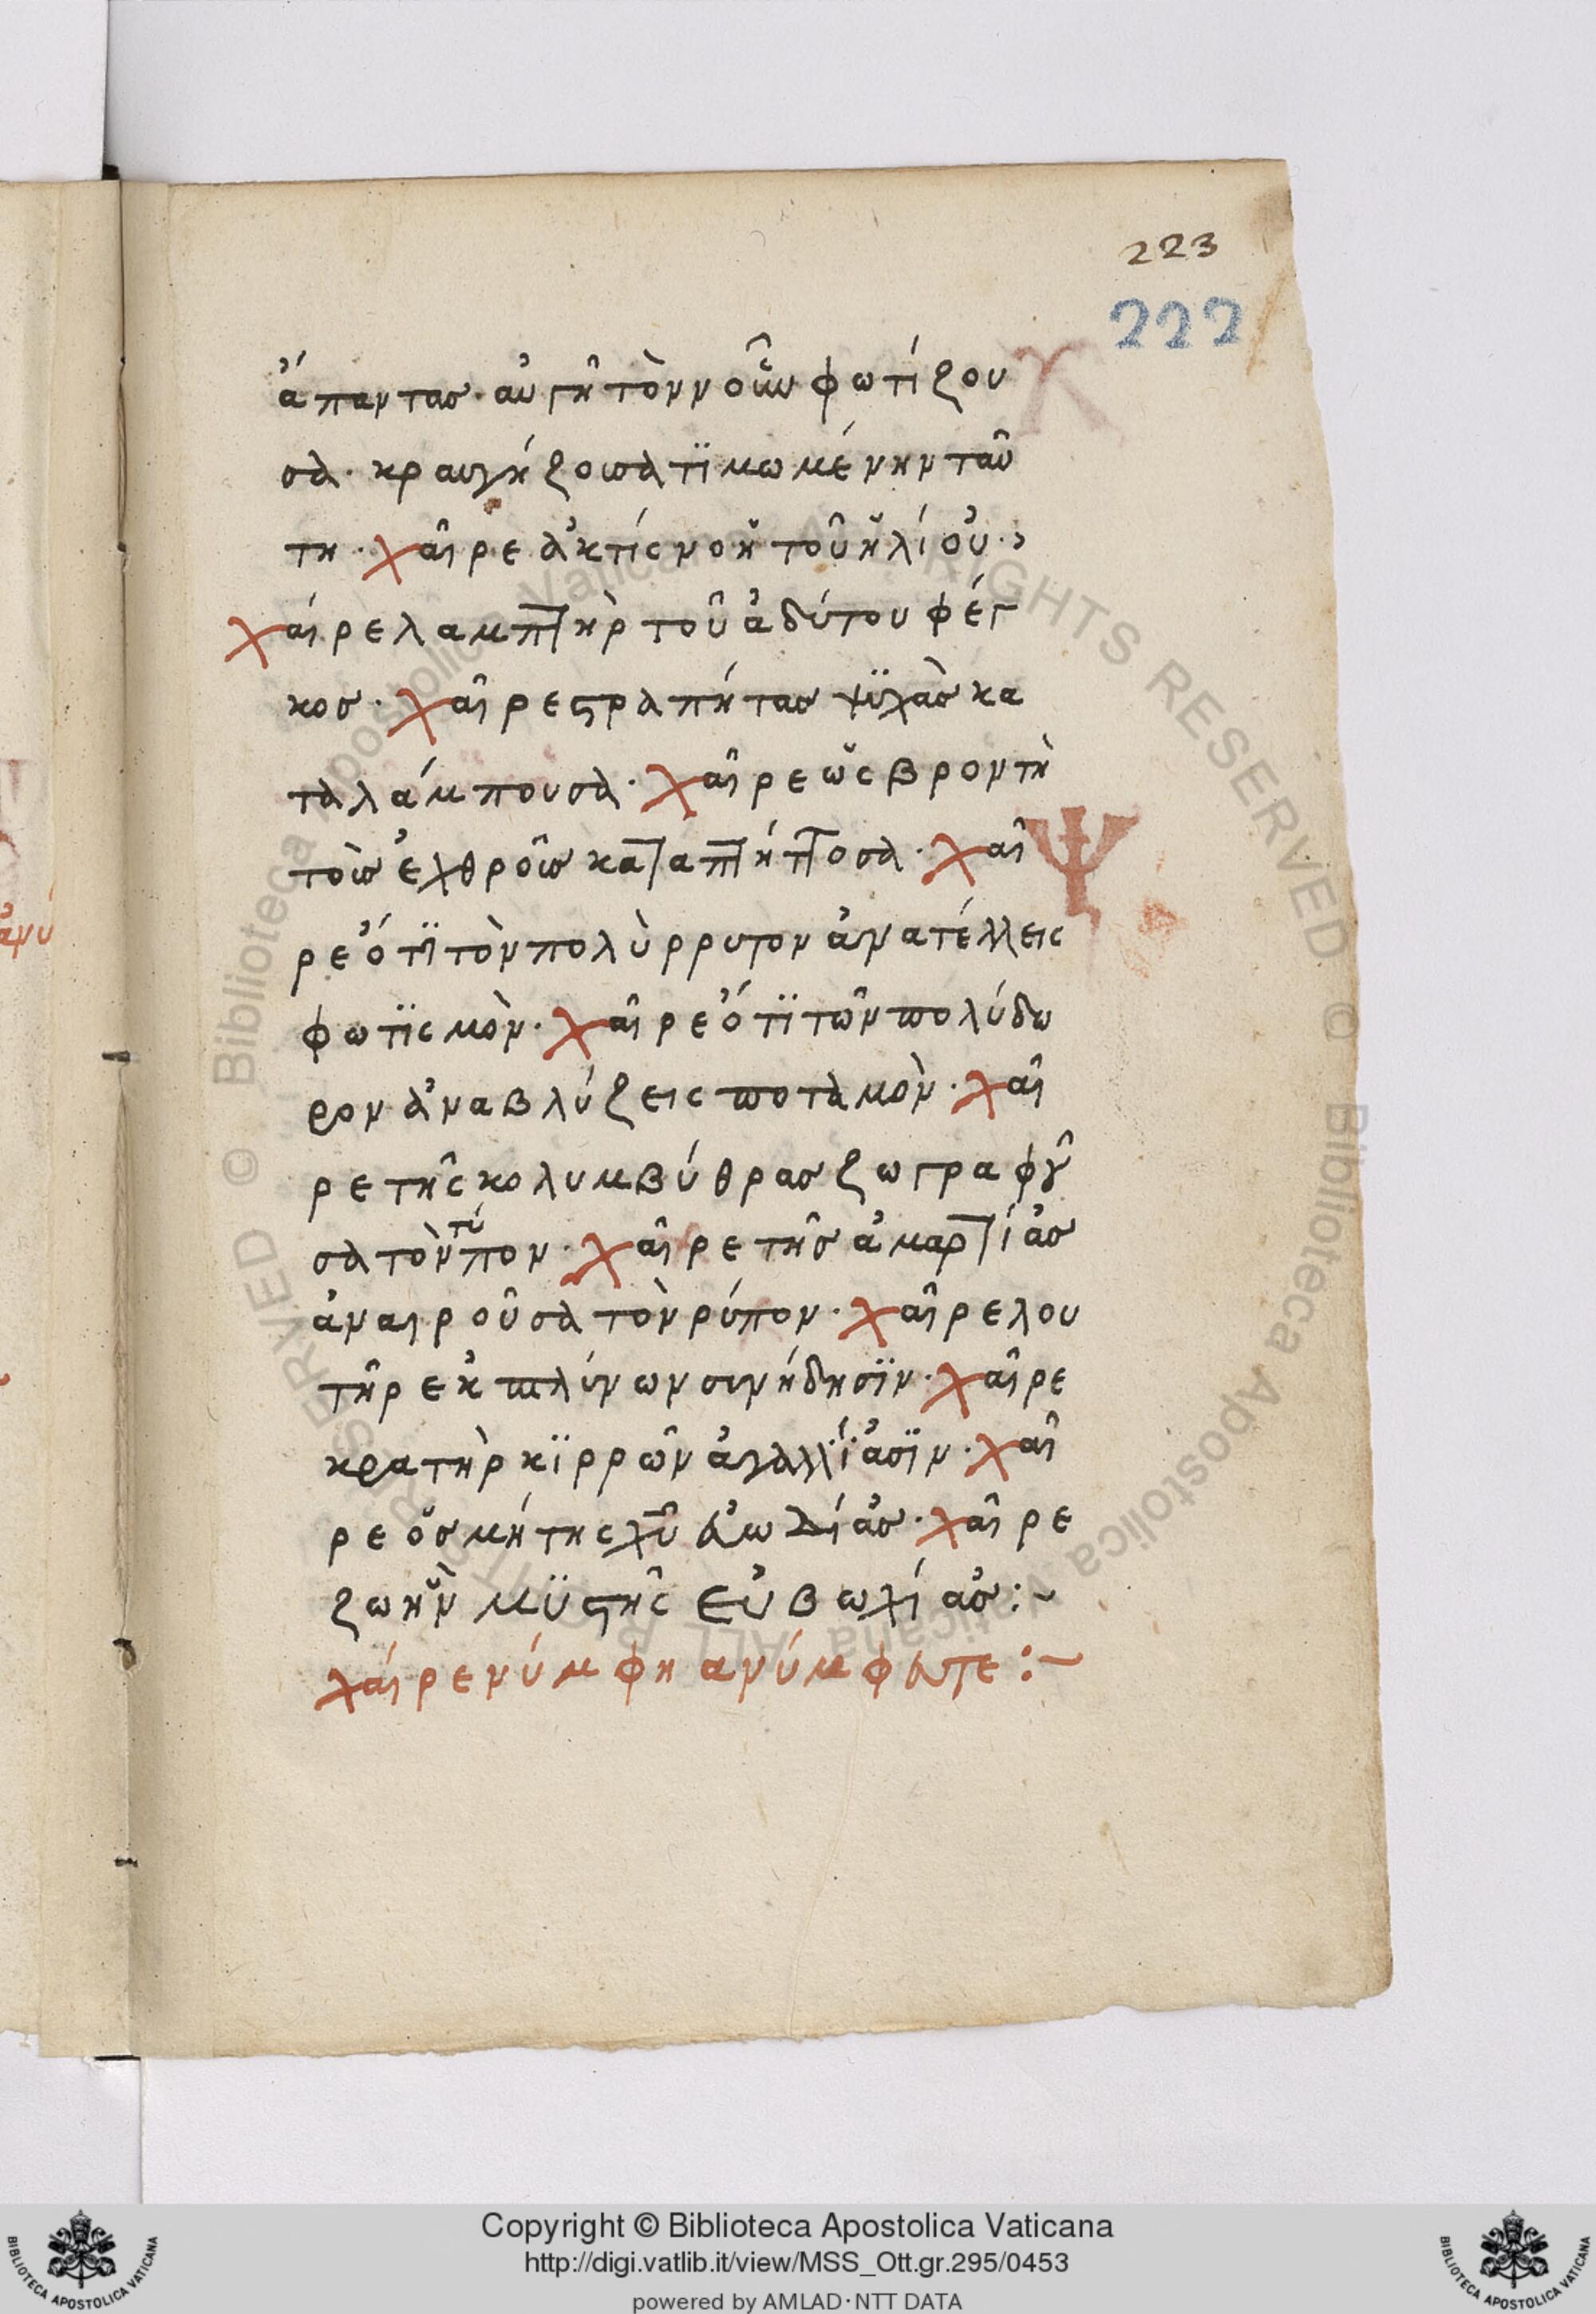 223
222
ἅπαντας· αὐγῆ τὸν νοῦν φωτίζου
σα· κραυγήζουσα τϊμωμένην ταῦ
τη· χαῖρε ἀκτίς νοη τοῦ ἡλίου·
χαίρε λαμπτὴρ τοῦ ἀδύτου φέγ
κος· χαῖρε ςραπήτας ψϋχὰς κα
ταλάμπουσα· χαῖρε ὡς βροντὴ
τοὺς ἐχθροῖς καταπτήττοσα· χαῖ
ρε ὅτϊ τὸν πολὺρρυτον ἀνατέλλεις
φωτϊσμὸν· χαῖρε ὅτϊ τῶν πολύδω
ρον ἀναβλύζεις ποταμὸν· χαῖ
ρε τῆς κολυμβύθρας ζωγραφοῦ
σα τὸν τύπον· χαῖρε τῆς ἁμαρτίας
ἀναιροῦσα τὸν ρύπον· χαῖρε λου
τῆρ εκπλύνων συνήδησϊν· χαῖρε
κρατὴρ κϊρρῶν ἀγαλλίασϊν· χαῖ
ρε ὀσμή της χυ εὐωδίας· χαῖρε
ζωὴν μϋςτῆς εὐβωχίας:~
χαίρε νύμφη ανύμφευτε:~
ἀνύ
Copyright © Biblioteca Apostolica Vaticana
http://digi.vatlib.it/view/MSS_Ott.gr.295/0453
powered by AMLAD·NTT DATA
BIBLIOTECA APOSTOLICA VATICANA
BIBLIOTECA APOSTOLICA VATICANA